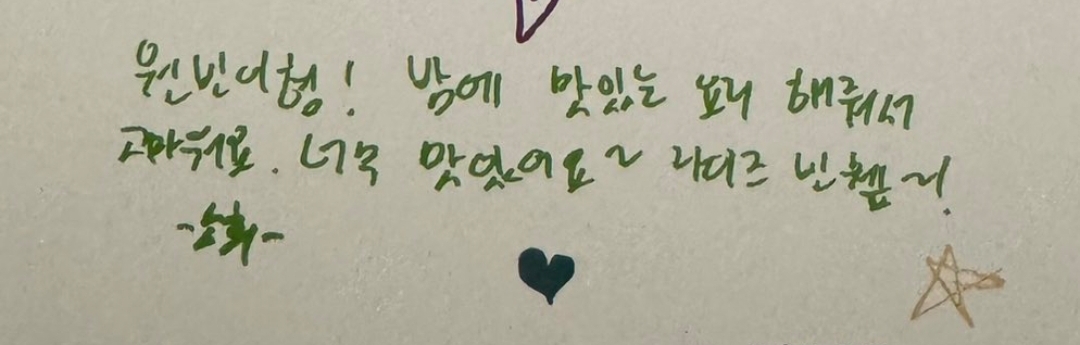 원빈이형! 밤에 맛있는 요리 해줘서
고마워요. 너무 맛있어요~ 라이즈 빈쉐프~!
-소희-